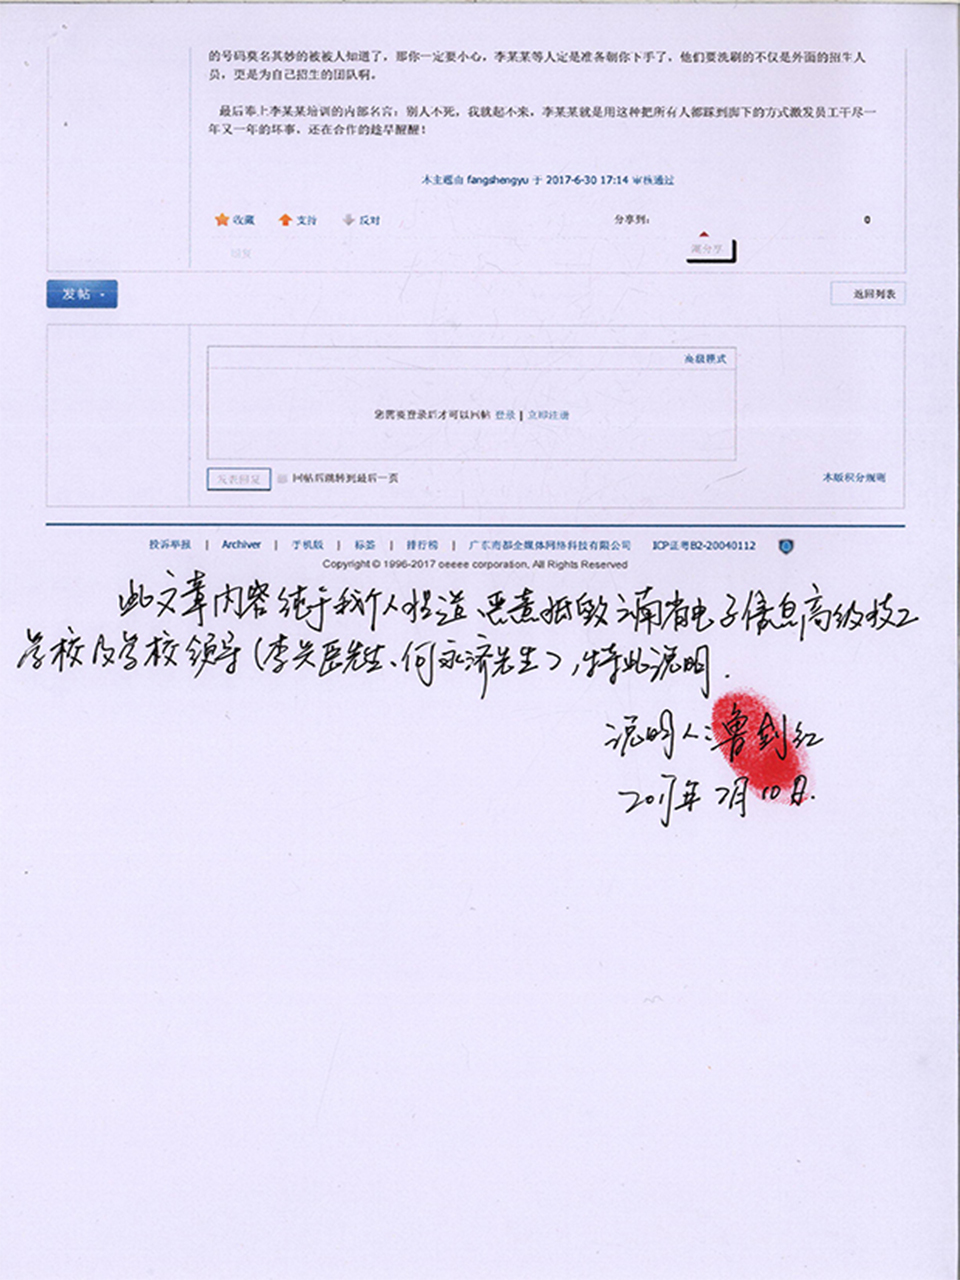 的号码莫名其妙的被被人知道了，那你一定要小心，李某某等人定是准备朝你下手了，他们要洗刷的不仅是外面的招生人
员，更是为自己招生的团队啊。
最后奉上李某某培训的内部名言：别人不死，我就起不来，李某某就是用这种把所有人都踩到脚下的方式激发员工干尽一
年又一年的坏事，还在合作的趁早醒醒！
本主题由 fangshengyu 于 2017-6-30 17:14 审核通过
收藏 支持 反对 分享到： 0
回复
发帖 返回列表
高级模式
您需要登录后才可以回帖 登录 | 立即注册
发表回复 回帖后跳转到最后一页 本版积分规则
投诉举报 | Archiver | 手机版 | 标签 | 排行榜 | 广东南都全媒体网络科技有限公司 ICP证粤B2-20040112
Copyright © 1996-2017 oeeee corporation, All Rights Reserved
此文章内容纯于我个人捏造,恶意抵毁湖南省电子信息高级技工
学校及学校领导(李先生、何永济先生),特此说明.
说明人:鲁剑红
2017年7月10日.